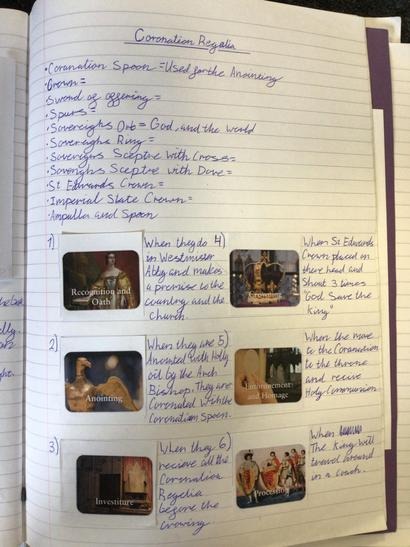 Coronation Regalia
·Coronation Spoon = Used for the Anointing
·Crown =
·Sword of offering =
·Spurs =
·Sovereighs Orb = God, and the world
·Sovereighs Ring =
·Sovereigns Sceptre with Cross =
·Sovereighs Sceptre with Dove =
·St Edwards Crown =
·Imperial State Crown =
·Ampulla and Spoon
1)
Recognition and
Oath
When they do
in Westminster
Abby and makes
a promise to the
country and the
church.
4)
Crowning
When St Edwards
Crown placed on
there head and
Shout 3 times
"God Save the
King"
2)
Anointing
When they are
Anointed with Holy
oil by the Arch
Bishop. They are
Coronated with the
Coronation Spoon.
5)
Enthronement
and Homage
When the move
to the Coronation
to the throne
and recive
Holy Communion
3)
Investiture
When they
recieve all the
Coronation
Regelia
before the
Crowing
6)
Procession
When
The King will
travel around
in a coach.